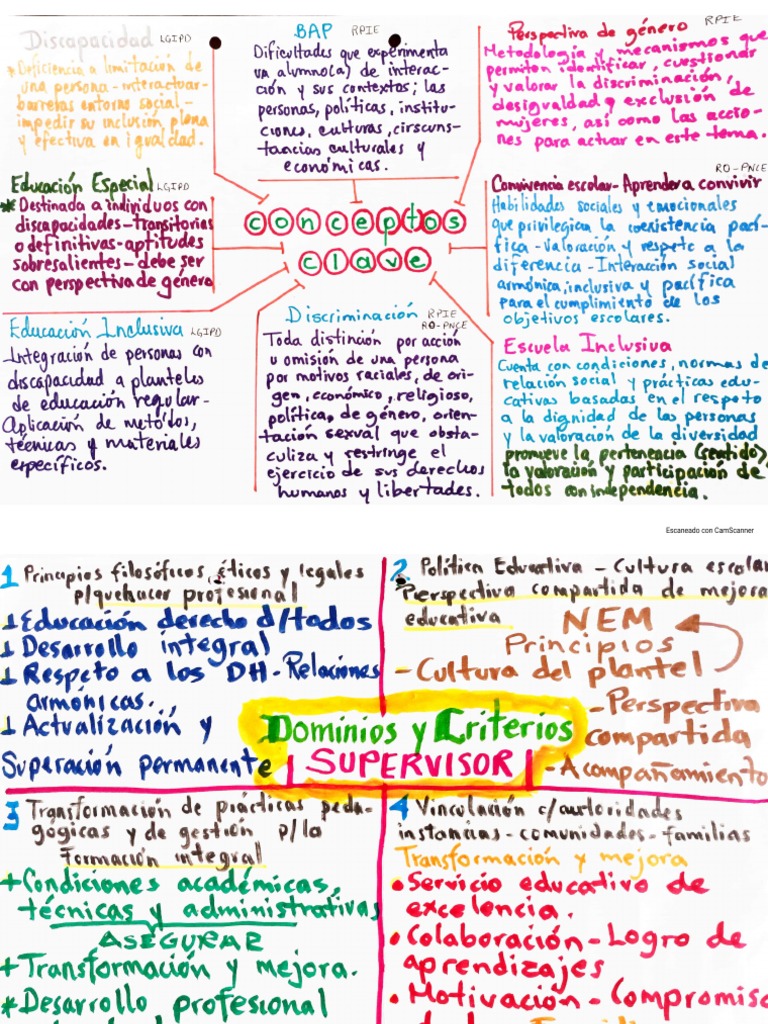 Discapacidad LGIPD
*Deficiencia o limitación de
una persona - interactuar-
barreras entorno social -
impedir su inclusión plena
y efectiva en igualdad.
BAP RPIE
Dificultades que experimenta
un alumno(a) de interac-
ción y sus contextos; las
personas, políticas, institu-
ciones, culturas, circuns-
tancias culturales y
económicas.
Perspectiva de género RPIE
Metodología y mecanismos que
permiten identificar, cuestionar
y valorar la discriminación,
desigualdad y exclusión de
mujeres, así como las accio-
nes para actuar en este tema.
Educación Especial LGIPD
* Destinada a individuos con
discapacidades - transitorias
o definitivas - aptitudes
sobresalientes - debe ser
con perspectiva de género
conceptos
clave
RO-PNCE
Convivencia escolar - Aprender a convivir
Habilidades sociales y emocionales
que privilegian la coexistencia pací-
fica - valoración y respeto a la
diferencia - Interacción social
armónica, inclusiva y pacífica
para el cumplimiento de los
objetivos escolares.
Educación Inclusiva LGIPD
Integración de personas con
discapacidad a planteles
de educación regular -
Aplicación de metódos,
técnicas y materiales
específicos.
Discriminación RPIE
RO-PNCE
Toda distinción por acción
u omisión de una persona
por motivos raciales, de ori-
gen, económico, religioso,
política, de género, orien-
tación sexual que obsta-
culiza y restringe el
ejercicio de sus derechos
humanos y libertades.
Escuela Inclusiva
Cuenta con condiciones, normas de
relación social y prácticas edu-
cativas basadas en el respeto
a la dignidad de las personas
y la valoración de la diversidad
promueve la pertenencia (sentido),
la valoración y participación de
todos con independencia.
Escaneado con CamScanner
1 Principios filosóficos, éticos y legales
p/quehacer profesional
Educación derecho d/todos
Desarrollo integral
Respeto a los DH - Relaciones
armónicas.
Actualización y
Superación permanente
2 Política Educativa - Cultura escolar
Perspectiva compartida de mejora
educativa
NEM
Principios
- Cultura del plantel
- Perspectiva
compartida
- Acompañamiento
Dominios y Criterios
SUPERVISOR
3 Transformación de prácticas peda-
gógicas y de gestión p/la
Formación integral
+ Condiciones académicas,
técnicas y administrativas
ASEGURAR
+ Transformación y mejora.
* Desarrollo profesional
4 Vinculación c/autoridades
instancias - comunidades - familias
Transformación y mejora
• Servicio educativo de
excelencia.
• Colaboración - Logro de
aprendizajes
• Motivación - Compromiso